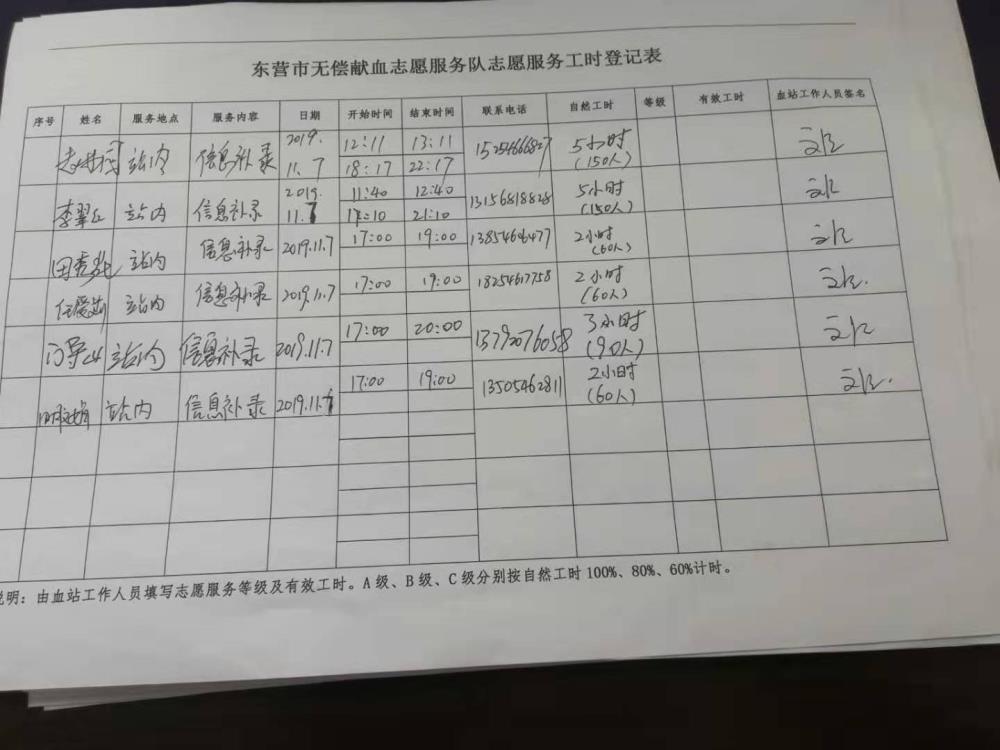 东营市无偿献血志愿服务队志愿服务工时登记表
序号 姓名 服务地点 服务内容 日期 开始时间 结束时间 联系电话 自然工时 等级 有效工时 血站工作人员签名
站内 信息补录 2019.11.7 12:11 13:11 15254666827 5小时(150人)
18:17 22:17
李翠红 站内 信息补录 2019.11.7 11:40 12:40 13156818828 5小时(150人)
17:10 21:10
站内 信息补录 2019.11.7 17:00 19:00 2小时(60人)
任爱 站内 信息补录 2019.11.7 17:00 19:00 18254617758 2小时(60人)
站内 信息补录 2019.11.7 17:00 20:00 13792076058 3小时(90人)
站内 信息补录 2019.11.7 17:00 19:00 13505462811 2小时(60人)
说明：由血站工作人员填写志愿服务等级及有效工时。A级、B级、C级分别按自然工时100%、80%、60%计时。